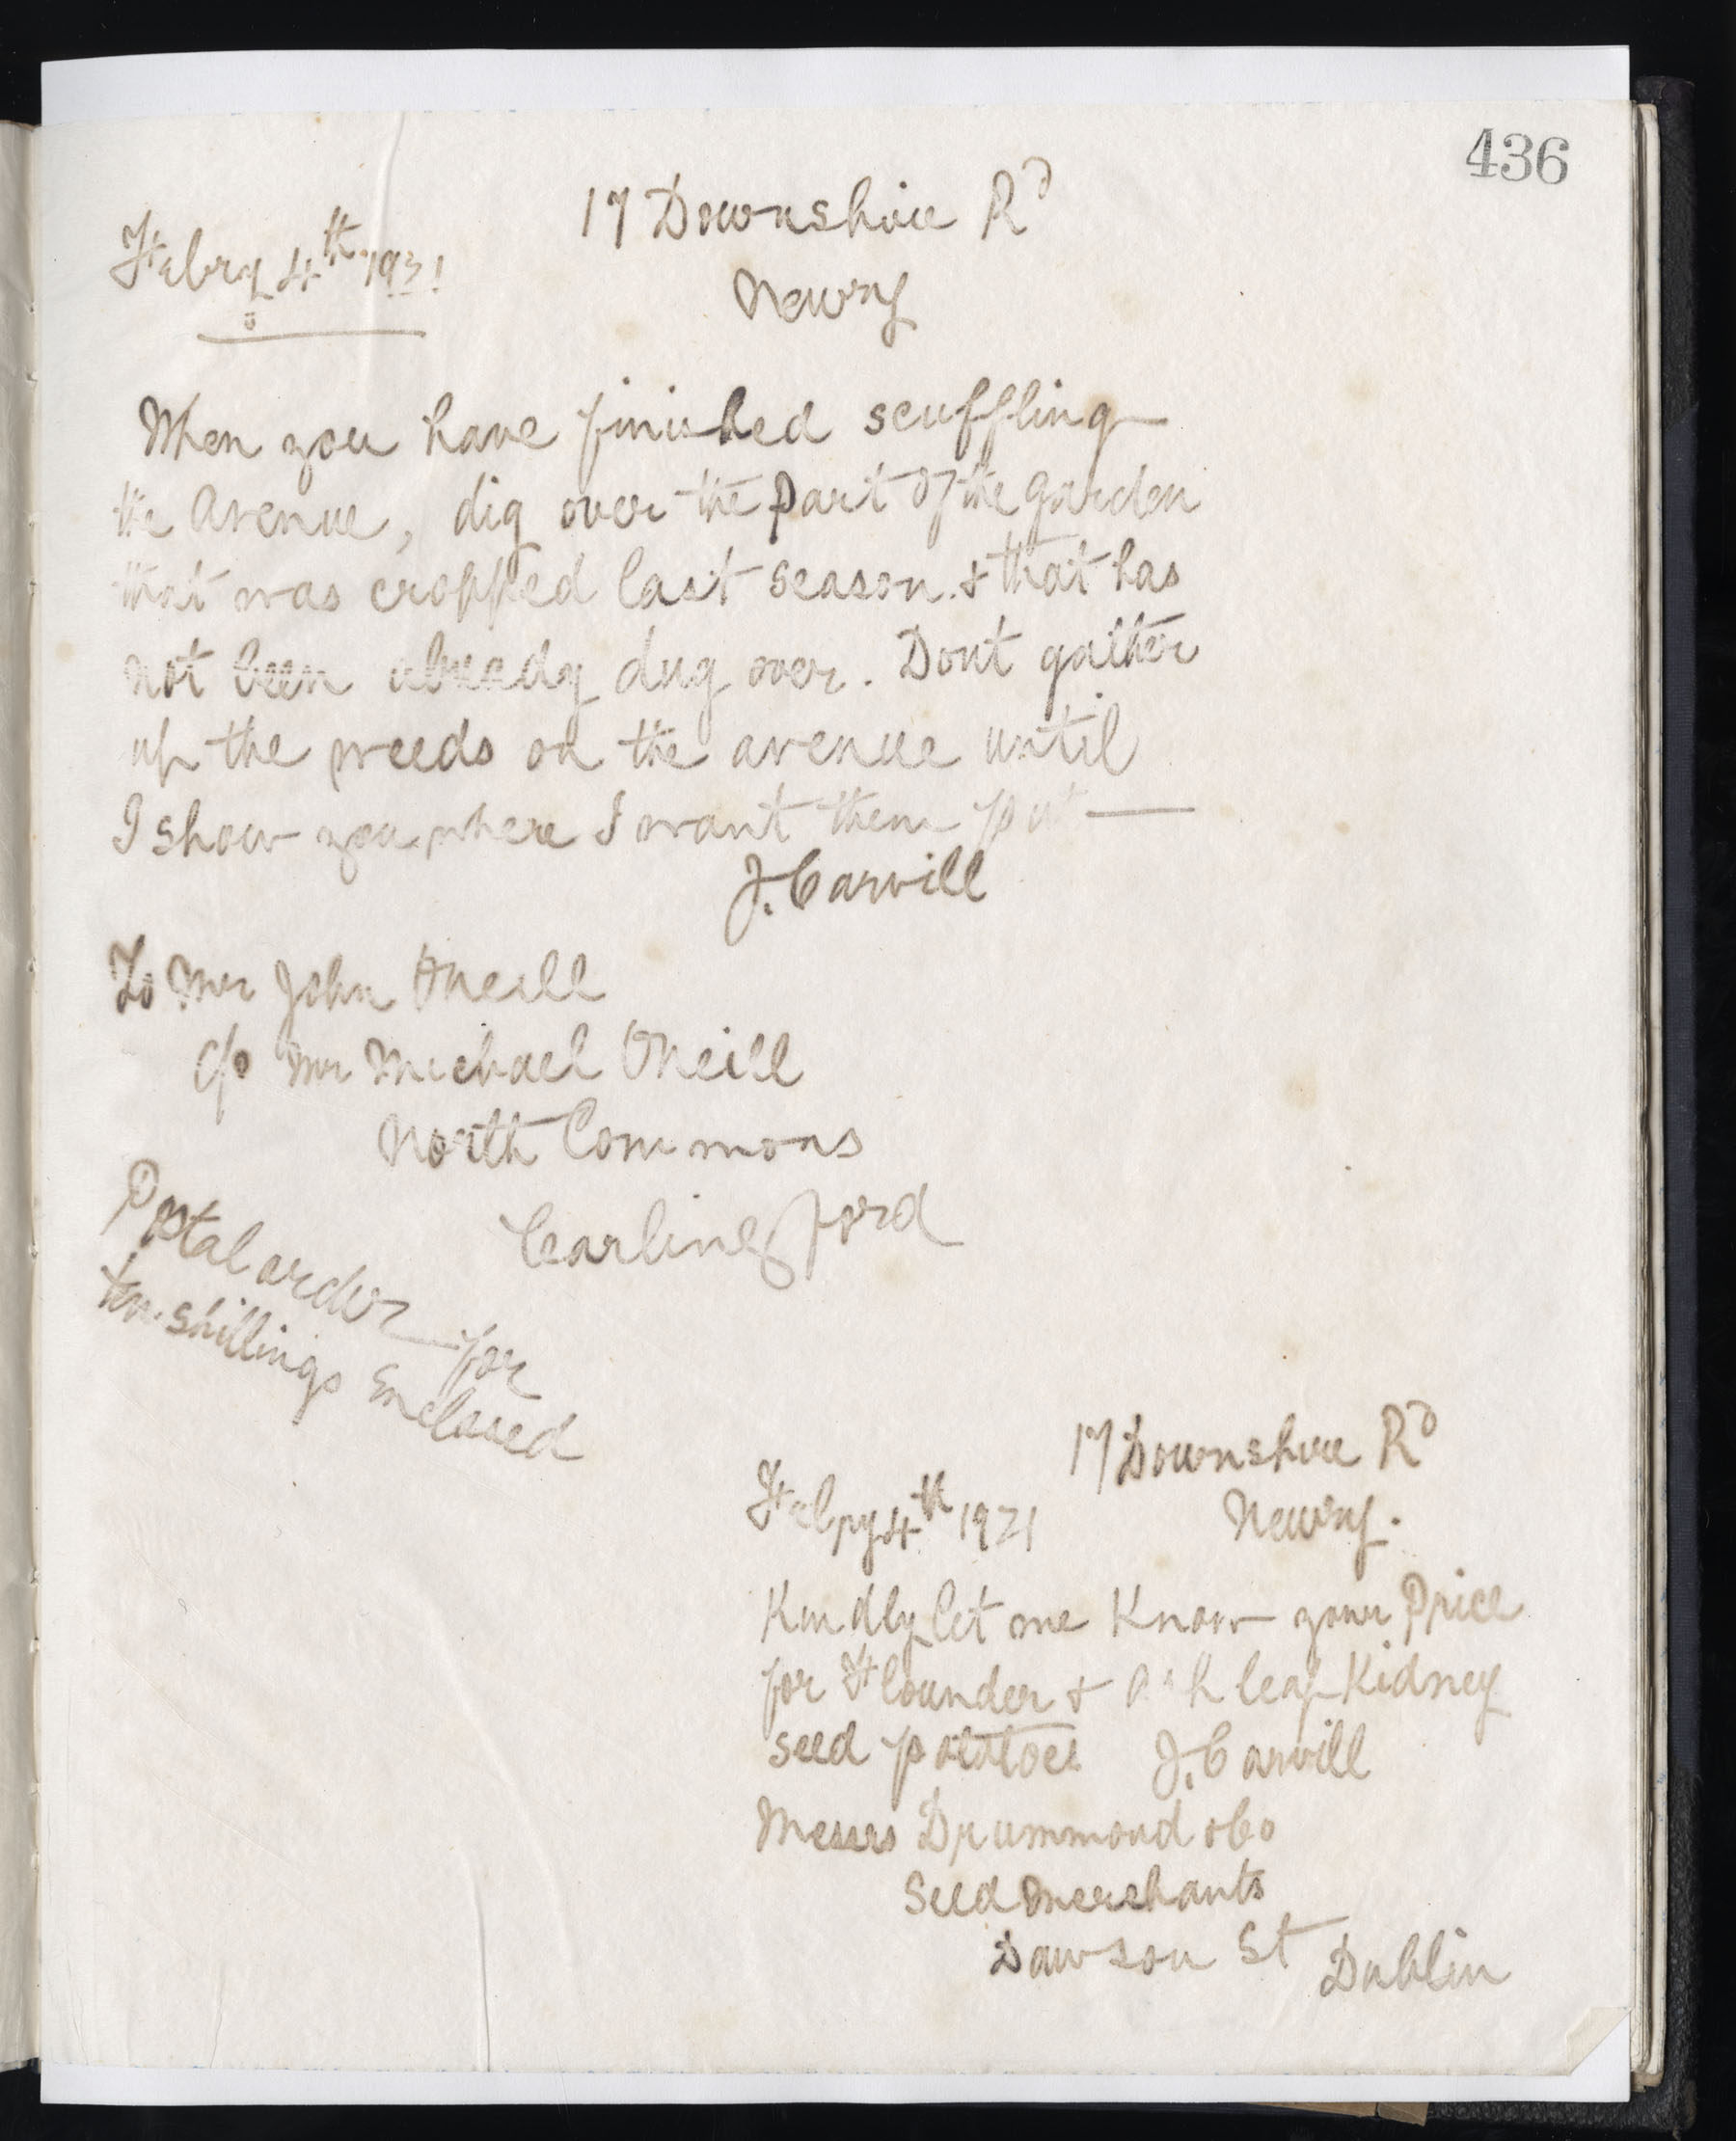 436
17 Downshire Rd
Newry
Febry 4th 1921
When you have finished scuffling
the Avenue, dig over the part of the garden
that was cropped last season & that has
not been already dug over. Dont gather
up the weeds on the avenue until
I show you where I want them put —
J. Carvill
To Mr John ONeill
c/o Mr Michael ONeill
North Commons
Carlingford
Postal order for
ten shillings Enclosed
17 Downshire Rd
Newry.
Febry 4th 1921
Kindly let me Know your Price
for Flounder & Ash leaf Kidney
seed potatoes J. Carvill
Messrs Drummond & Co
Seed Merchants
Dawson St Dublin